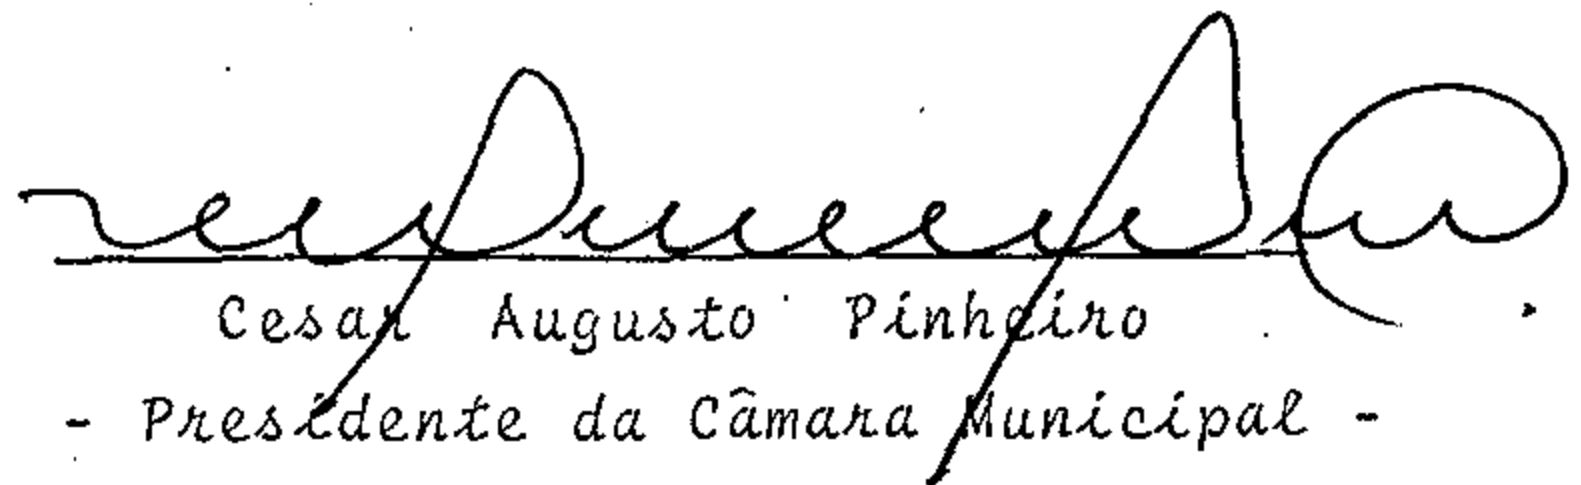 Cesar Augusto Pinheiro
- Presidente da Câmara Municipal -